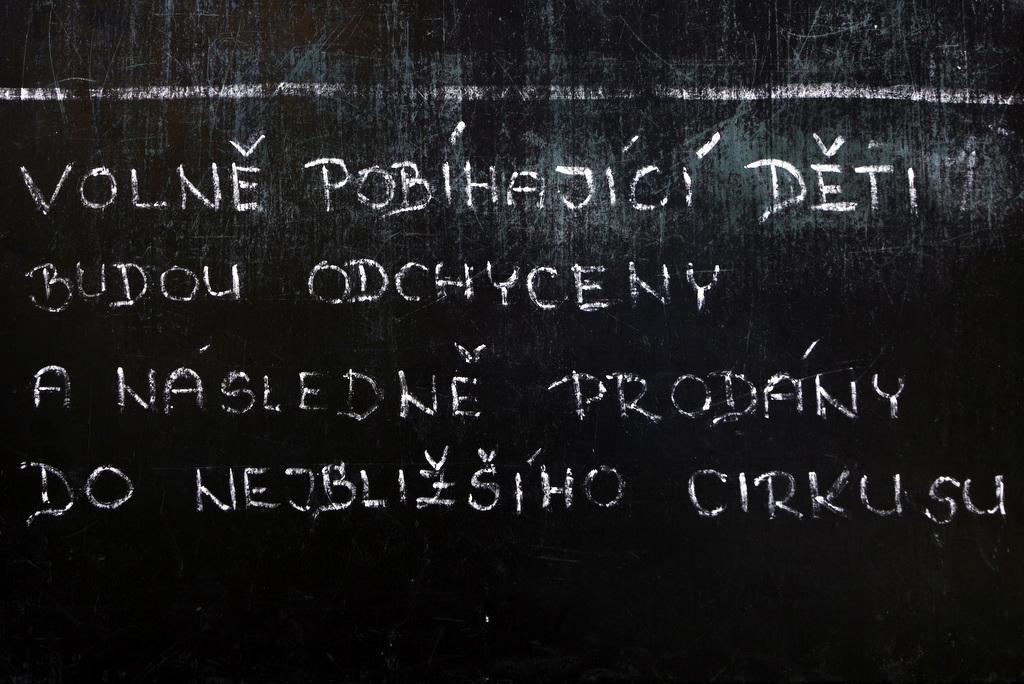 VOLNĚ POBÍHAJÍCÍ DĚTI
BUDOU ODCHYCENY
A NÁSLEDNĚ PRODÁNY
DO NEJBLIŽŠÍHO CIRKUSU